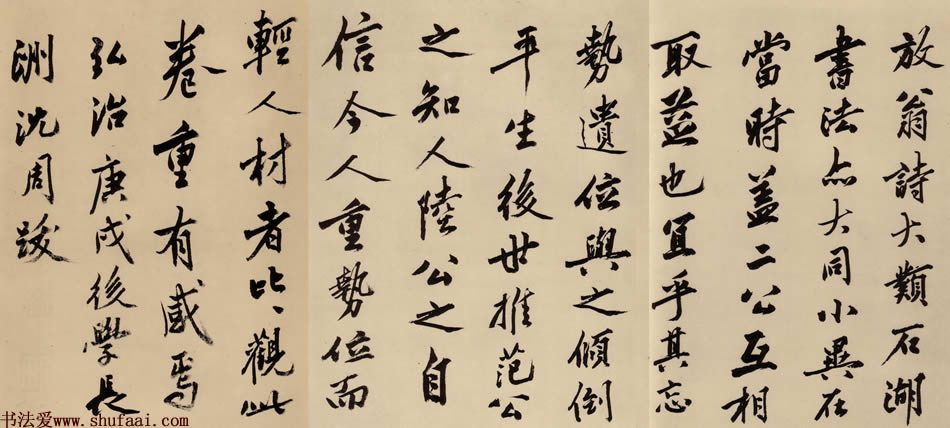 放翁詩大類石湖
書法亦大同小異在
當時蓋二公互相
取益也宜乎其忘
勢遺位與之傾倒
平生後世推范公
之知人陸公之自
信今人重勢位而
輕人材者比比觀此
卷重有感焉
弘治庚戌後學長
洲沈周跋
书法爱www.shufaai.com